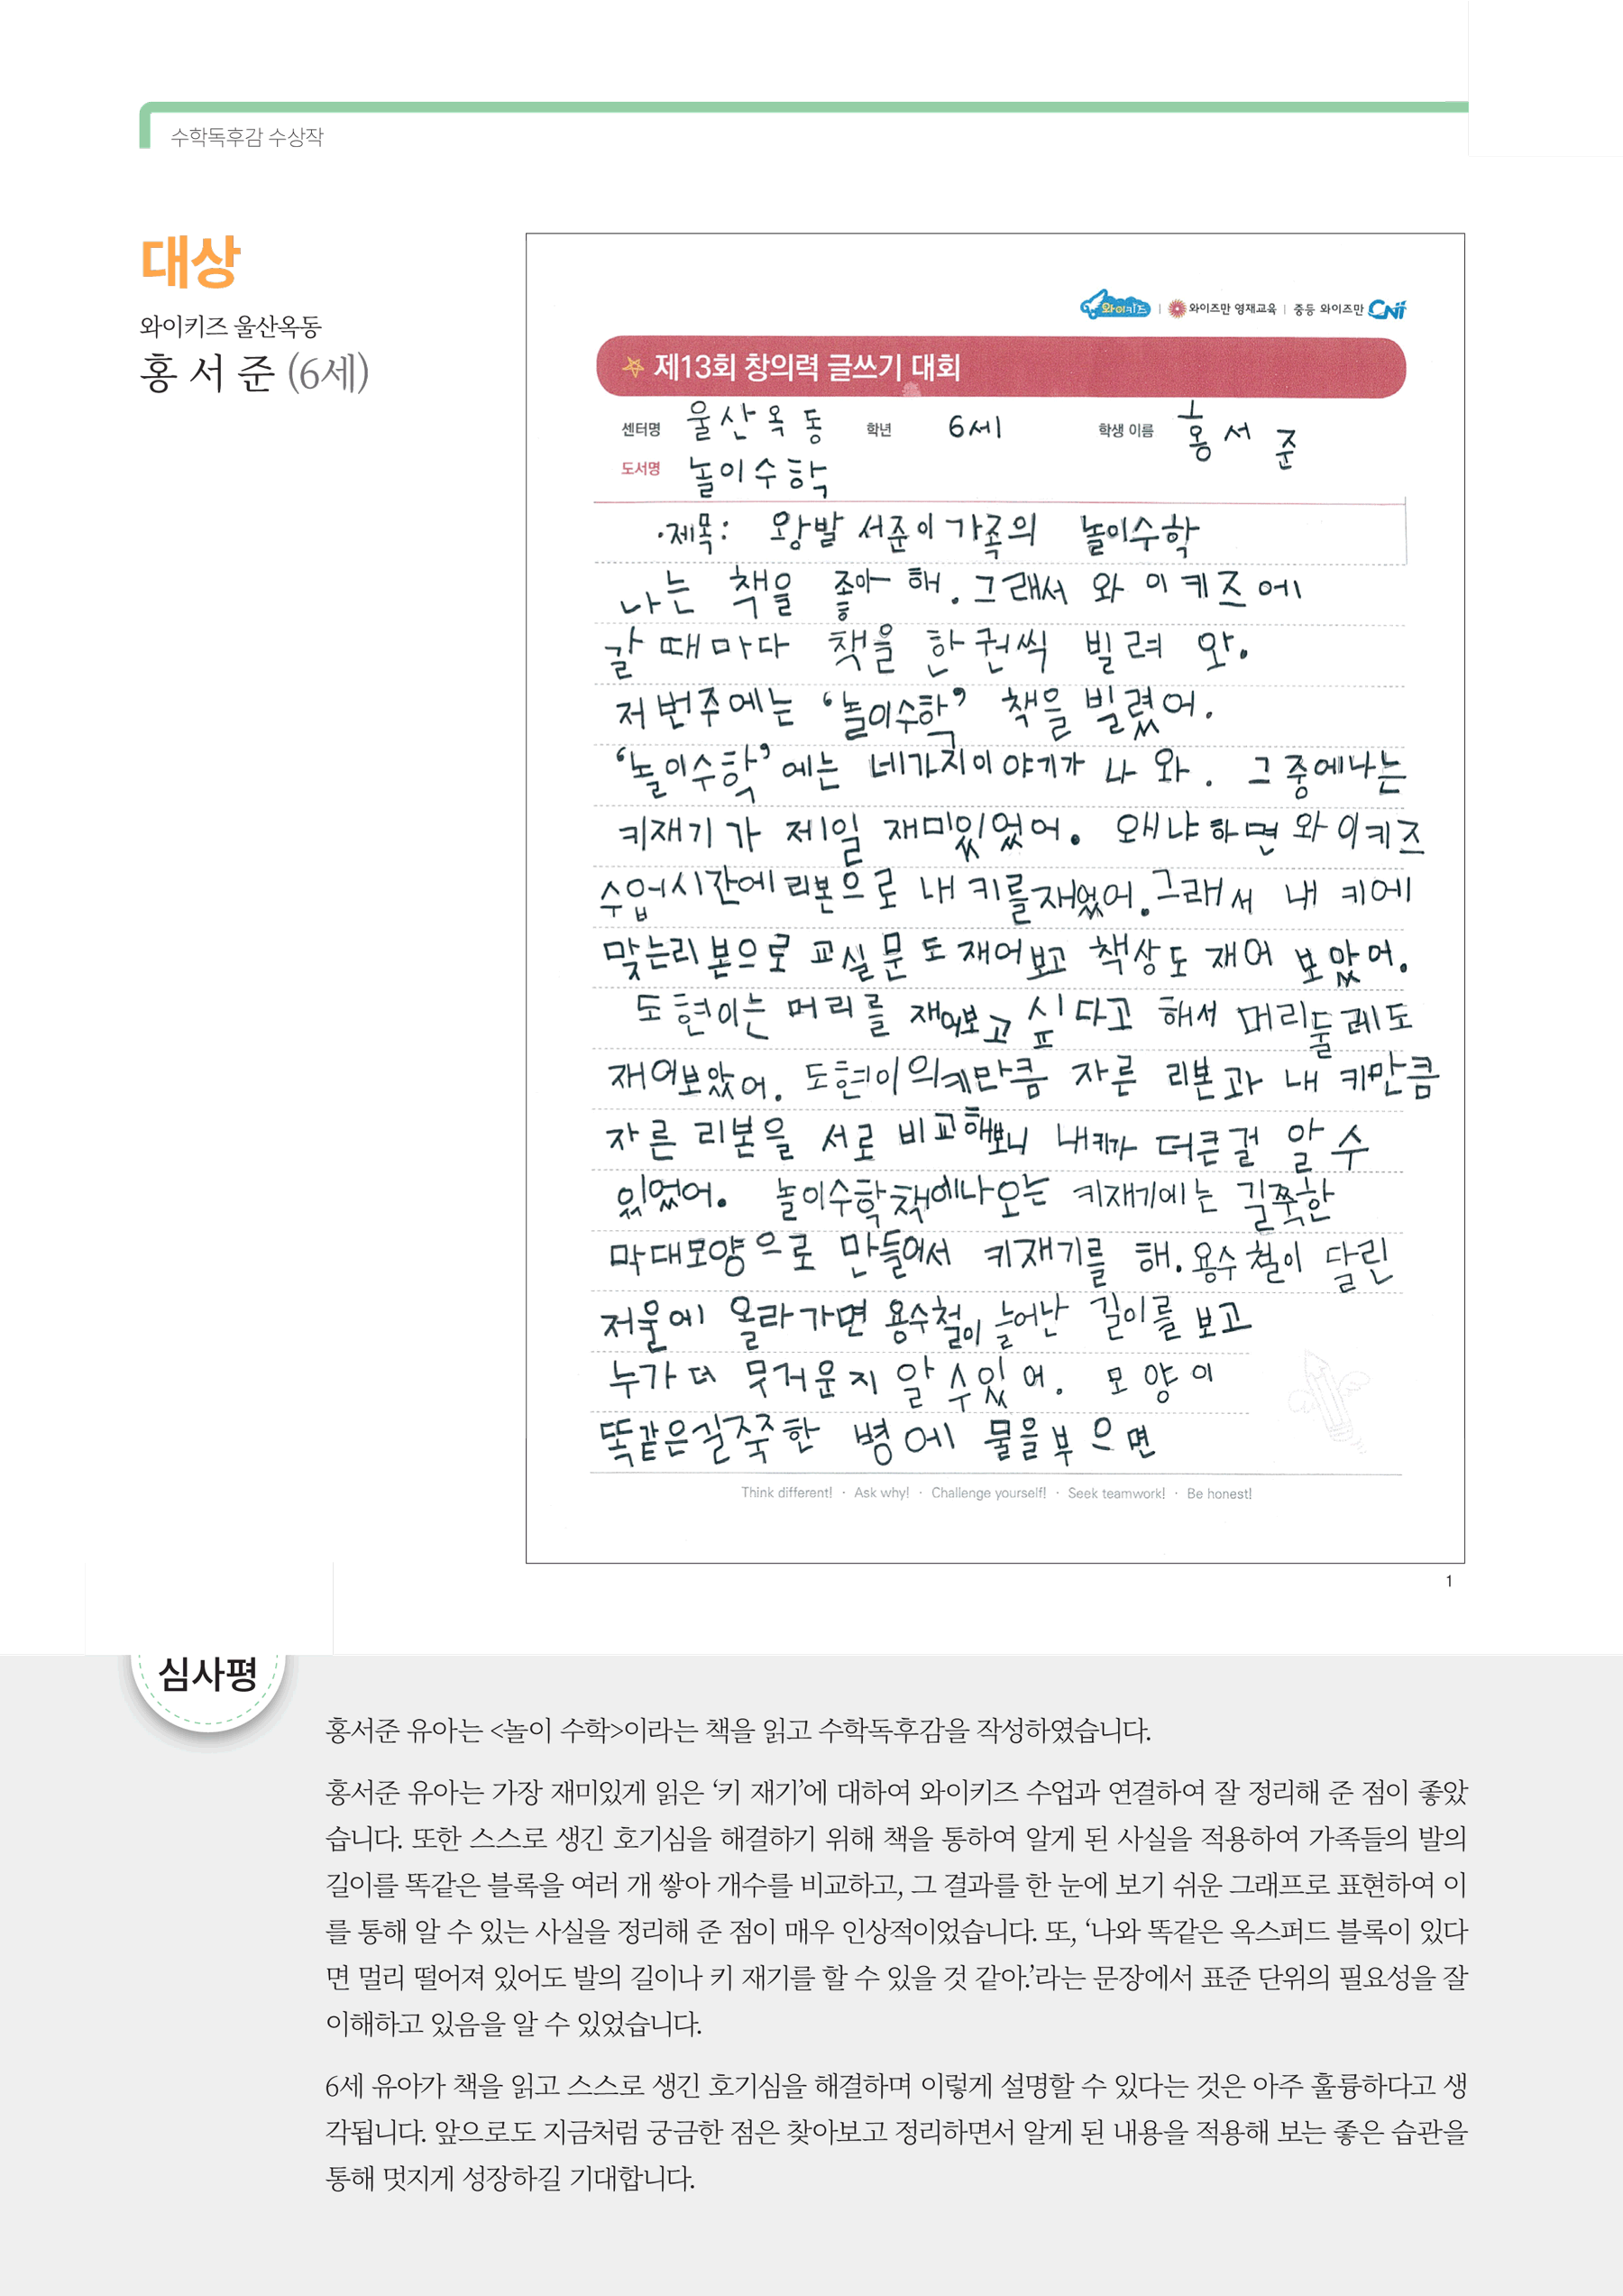 수학독후감 수상작
대상
와이키즈 울산옥동
홍서준 (6세)
와이키즈 | 와이즈만 영재교육 | 중등 와이즈만 CNI
제13회 창의력 글쓰기 대회
센터명 울산옥동 학년 6세 학생 이름 홍서준
도서명 놀이수학
·제목: 왕발 서준이가족의 놀이수학
나는 책을 좋아해. 그래서 와이키즈에
갈 때마다 책을 한권씩 빌려 와.
저번주에는 ‘놀이수학’ 책을 빌렸어.
‘놀이수학’에는 네가지이야기가 나와. 그중에나는
키재기가 제일 재미있었어. 왜냐하면 와이키즈
수업시간에 리본으로 내 키를재었어. 그래서 내 키에
맞는리본으로 교실문도 재어보고 책상도 재어 보았어.
도현이는 머리를 재어보고 싶다고 해서 머리둘레도
재어보았어. 도현이의키만큼 자른 리본과 내 키만큼
자른 리본을 서로 비교해보니 내키가 더큰걸 알 수
있었어. 놀이수학책에나오는 키재기에는 길쭉한
막대모양으로 만들어서 키재기를 해. 용수철이 달린
저울에 올라가면 용수철이 늘어난 길이를 보고
누가더 무거운지 알 수있어. 모양이
똑같은길쭉한 병에 물을부으면
Think different! · Ask why! · Challenge yourself! · Seek teamwork! · Be honest!
1
심사평
홍서준 유아는 <놀이 수학>이라는 책을 읽고 수학독후감을 작성하였습니다.
홍서준 유아는 가장 재미있게 읽은 ‘키 재기’에 대하여 와이키즈 수업과 연결하여 잘 정리해 준 점이 좋았
습니다. 또한 스스로 생긴 호기심을 해결하기 위해 책을 통하여 알게 된 사실을 적용하여 가족들의 발의
길이를 똑같은 블록을 여러 개 쌓아 개수를 비교하고, 그 결과를 한 눈에 보기 쉬운 그래프로 표현하여 이
를 통해 알 수 있는 사실을 정리해 준 점이 매우 인상적이었습니다. 또, ‘나와 똑같은 옥스퍼드 블록이 있다
면 멀리 떨어져 있어도 발의 길이나 키 재기를 할 수 있을 것 같아.’라는 문장에서 표준 단위의 필요성을 잘
이해하고 있음을 알 수 있었습니다.
6세 유아가 책을 읽고 스스로 생긴 호기심을 해결하며 이렇게 설명할 수 있다는 것은 아주 훌륭하다고 생
각됩니다. 앞으로도 지금처럼 궁금한 점은 찾아보고 정리하면서 알게 된 내용을 적용해 보는 좋은 습관을
통해 멋지게 성장하길 기대합니다.